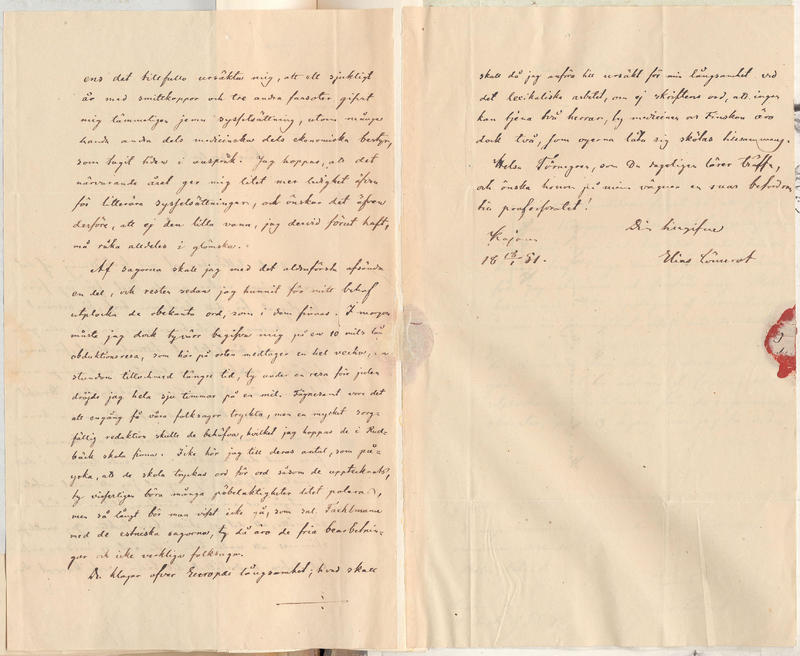 ens det tillfullo ursäkta mig, att ett sjukligt
år med smittkoppor och tre andra farsoter gifvit
mig tämmeligen jemn sysselsättning, utom många
handa andra dels medicinska dels ekonomiska bestyr,
som tagit tiden i anspråk. Jag hoppas, att det
närvarande året ger mig litet mer ledighet äfven
för litterära sysselsättningar, och önskar det äfven
derföre, att ej den lilla vana, jag dervid förut haft,
må råka alldeles i glömska. –
Af sagorna skall jag med det aldraförsta afsända
en del, och resten sedan jag hunnit för mitt behof
utplocka de obekanta ord, som i dem finnas. I morgon
måste jag dock tyvärr begifva mig på en 10 mils lång
obduktionsresa, som här på orten medtager en hel vecka,
stundom tillochmed längre tid, ty under en resa före julen
dröjde jag hela sju timmar på en mil. Fägnesamt vore det
att engång få våra folksagor tryckta, men en mycket sorg-
fällig redaktion skulle de behöfva, hvilket jag hoppas de i Rud-
bäck skola finna. Icke hör jag till deras antal, som på-
yrka, att de skola tryckas ord för ord såsom de upptecknats,
ty visserligen böra många pöbelaktigheter litet poleras,
men så långt bör man visst icke gå, som sal. Faehlmann
med de estniska sagorna, ty då äro de fria bearbetnin-
gar och icke verkliga folksagor.
Du klagar öfver Europæi långsamhet; hvad skall
skall då jag anföra till ursäkt för min långsamhet vid
det lexikaliska arbetet, om ej skriftens ord, att ingen
kan tjena två herrar, ty medicinen och Finskan äro
dock två, som ogerna låta sig skötas tillsammans.
Helsa Törnegren, som Du sagoligen lärer träffa,
och önska honom på mina vägnar en snar befordran
till professoratet!
Din tillgifne
Kajana
18 13/1 51.
Elias Lönnrot